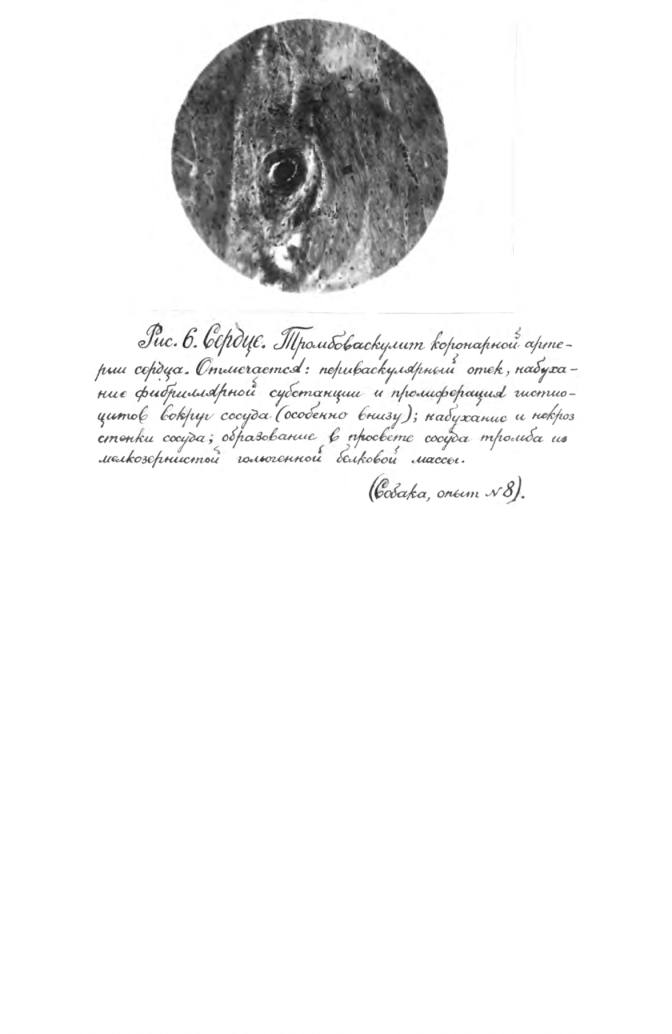 Рис. 6. Сердце. Тромбоваскулит коронарной арте-
рии сердца. Отмечается: периваскулярный отек, набуха-
ние фибриллярной субстанции и пролиферация гистио-
цитов вокруг сосуда (особенно внизу); набухание и некроз
стенки сосуда; образование в просвете сосуда тромба из
мелкозернистой гомогенной белковой массы.
(Собака, опыт №8).